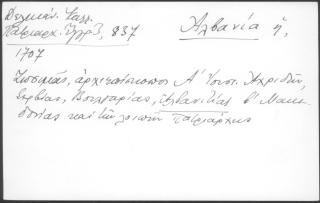 Δελικάν. Καλλ.
Πατριαρχ. Ἔγγρ. 3, 837
Ἀλβανία ἡ,
1707
Ζωσιμᾶς, ἀρχιεπίσκοπος Α΄ Ἰουστ. Ἀχριδῶν,
Σερβίας, Βουλγαρίας, Ἀλβανιτίας Β΄ Μακε-
δονίας καὶ τῶν λοιπῶν πατριάρχης